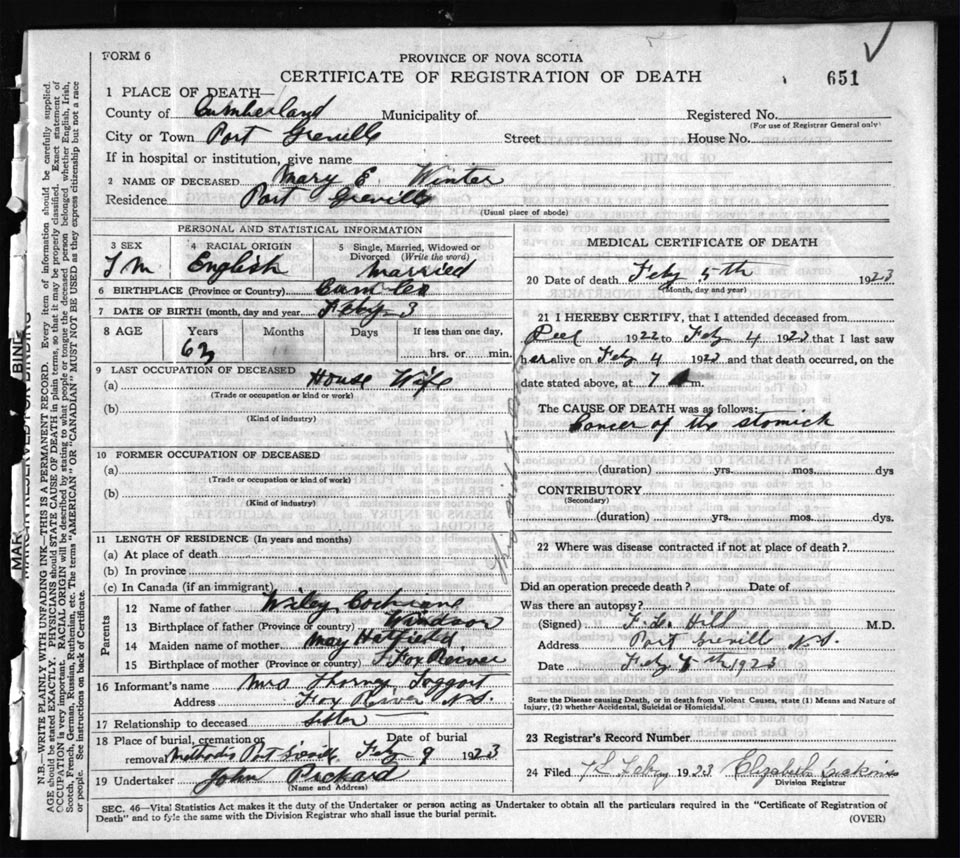 FORM 6
PROVINCE OF NOVA SCOTIA
CERTIFICATE OF REGISTRATION OF DEATH
651
1 PLACE OF DEATH—
County of Cumberland Municipality of
Registered No.
(For use of Registrar General only)
City or Town Port Greville Street House No.
If in hospital or institution, give name
2 NAME OF DECEASED Mary E. Winter
Residence Port Greville
(Usual place of abode)
PERSONAL AND STATISTICAL INFORMATION
3 SEX
4 RACIAL ORIGIN
5 Single, Married, Widowed or Divorced (Write the word)
English
Married
6 BIRTHPLACE (Province or Country)
7 DATE OF BIRTH (month, day and year) Feby 3
8 AGE Years Months Days If less than one day,
63
hrs. or min.
9 LAST OCCUPATION OF DECEASED
(a) House Wife
(Trade or occupation or kind or work)
(b)
(Kind of industry)
10 FORMER OCCUPATION OF DECEASED
(a)
(Trade or occupation or kind or work)
(b)
(Kind of industry)
11 LENGTH OF RESIDENCE (In years and months)
(a) At place of death
(b) In province
(c) In Canada (if an immigrant)
Parents
12 Name of father Wiley Cochrane
13 Birthplace of father (Province or country) Windsor
14 Maiden name of mother May Hatfield
15 Birthplace of mother (Province or country) Fox Reiver
16 Informant's name Mrs
Address Fox River N.S.
17 Relationship to deceased sister
18 Place of burial, cremation or removal Date of burial
Feby 9 1923
19 Undertaker John Pickard
(Name and Address)
MEDICAL CERTIFICATE OF DEATH
20 Date of death Feby 5th 1923
(Month, day and year)
21 I HEREBY CERTIFY, that I attended deceased from
1922 to Feby 4 1923 that I last saw
her alive on Feby 4 1923 and that death occurred, on the
date stated above, at 7 m.
The CAUSE OF DEATH was as follows:
Cancer of the stomick
(duration) yrs. mos. dys
CONTRIBUTORY
(Secondary)
(duration) yrs. mos. dys.
22 Where was disease contracted if not at place of death?
Did an operation precede death? Date of
Was there an autopsy?
(Signed) Hill M.D.
Address Port Greville N.S.
Date Feby 1923
State the Disease causing Death, or in death from Violent Causes, state (1) Means and Nature of Injury, (2) whether Accidental, Suicidal or Homicidal.
23 Registrar's Record Number
24 Filed Feby 1923 Elizabeth
Division Registrar
SEC. 46—Vital Statistics Act makes it the duty of the Undertaker or person acting as Undertaker to obtain all the particulars required in the "Certificate of Registration of
Death" and to fyle the same with the Division Registrar who shall issue the burial permit.
(OVER)
N.B.—WRITE PLAINLY WITH UNFADING INK—THIS IS A PERMANENT RECORD. Every item of information should be carefully supplied.
AGE should be stated EXACTLY. PHYSICIANS should STATE CAUSE OF DEATH in plain terms, so that it may be properly classified. Exact statement of
OCCUPATION is very important. RACIAL ORIGIN will be described by stating to what people or tongue the deceased person belonged whether English, Irish,
Scotch, French, German, Russian, Ruthenian, etc. The terms "AMERICAN" OR "CANADIAN" MUST NOT BE USED as they express citizenship but not a race
or people. See instructions on back of Certificate.